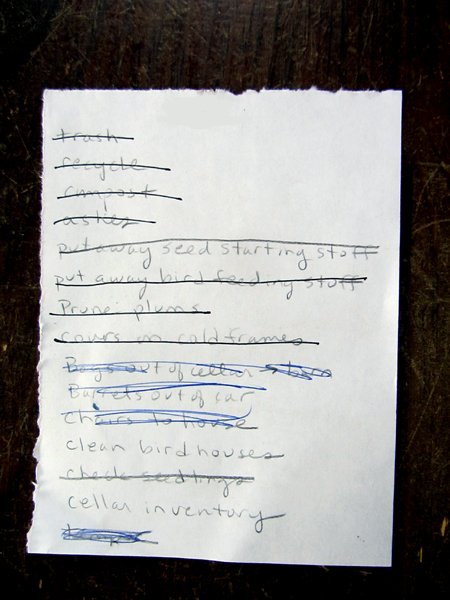 trash
recycle
compost
ashes
put away seed starting stuff
put away bird feeding stuff
Prune plums
covers on coldframes
Bags out of cellar → barn
Barrels out of car
Chairs to house
clean bird houses
check seedlings
cellar inventory